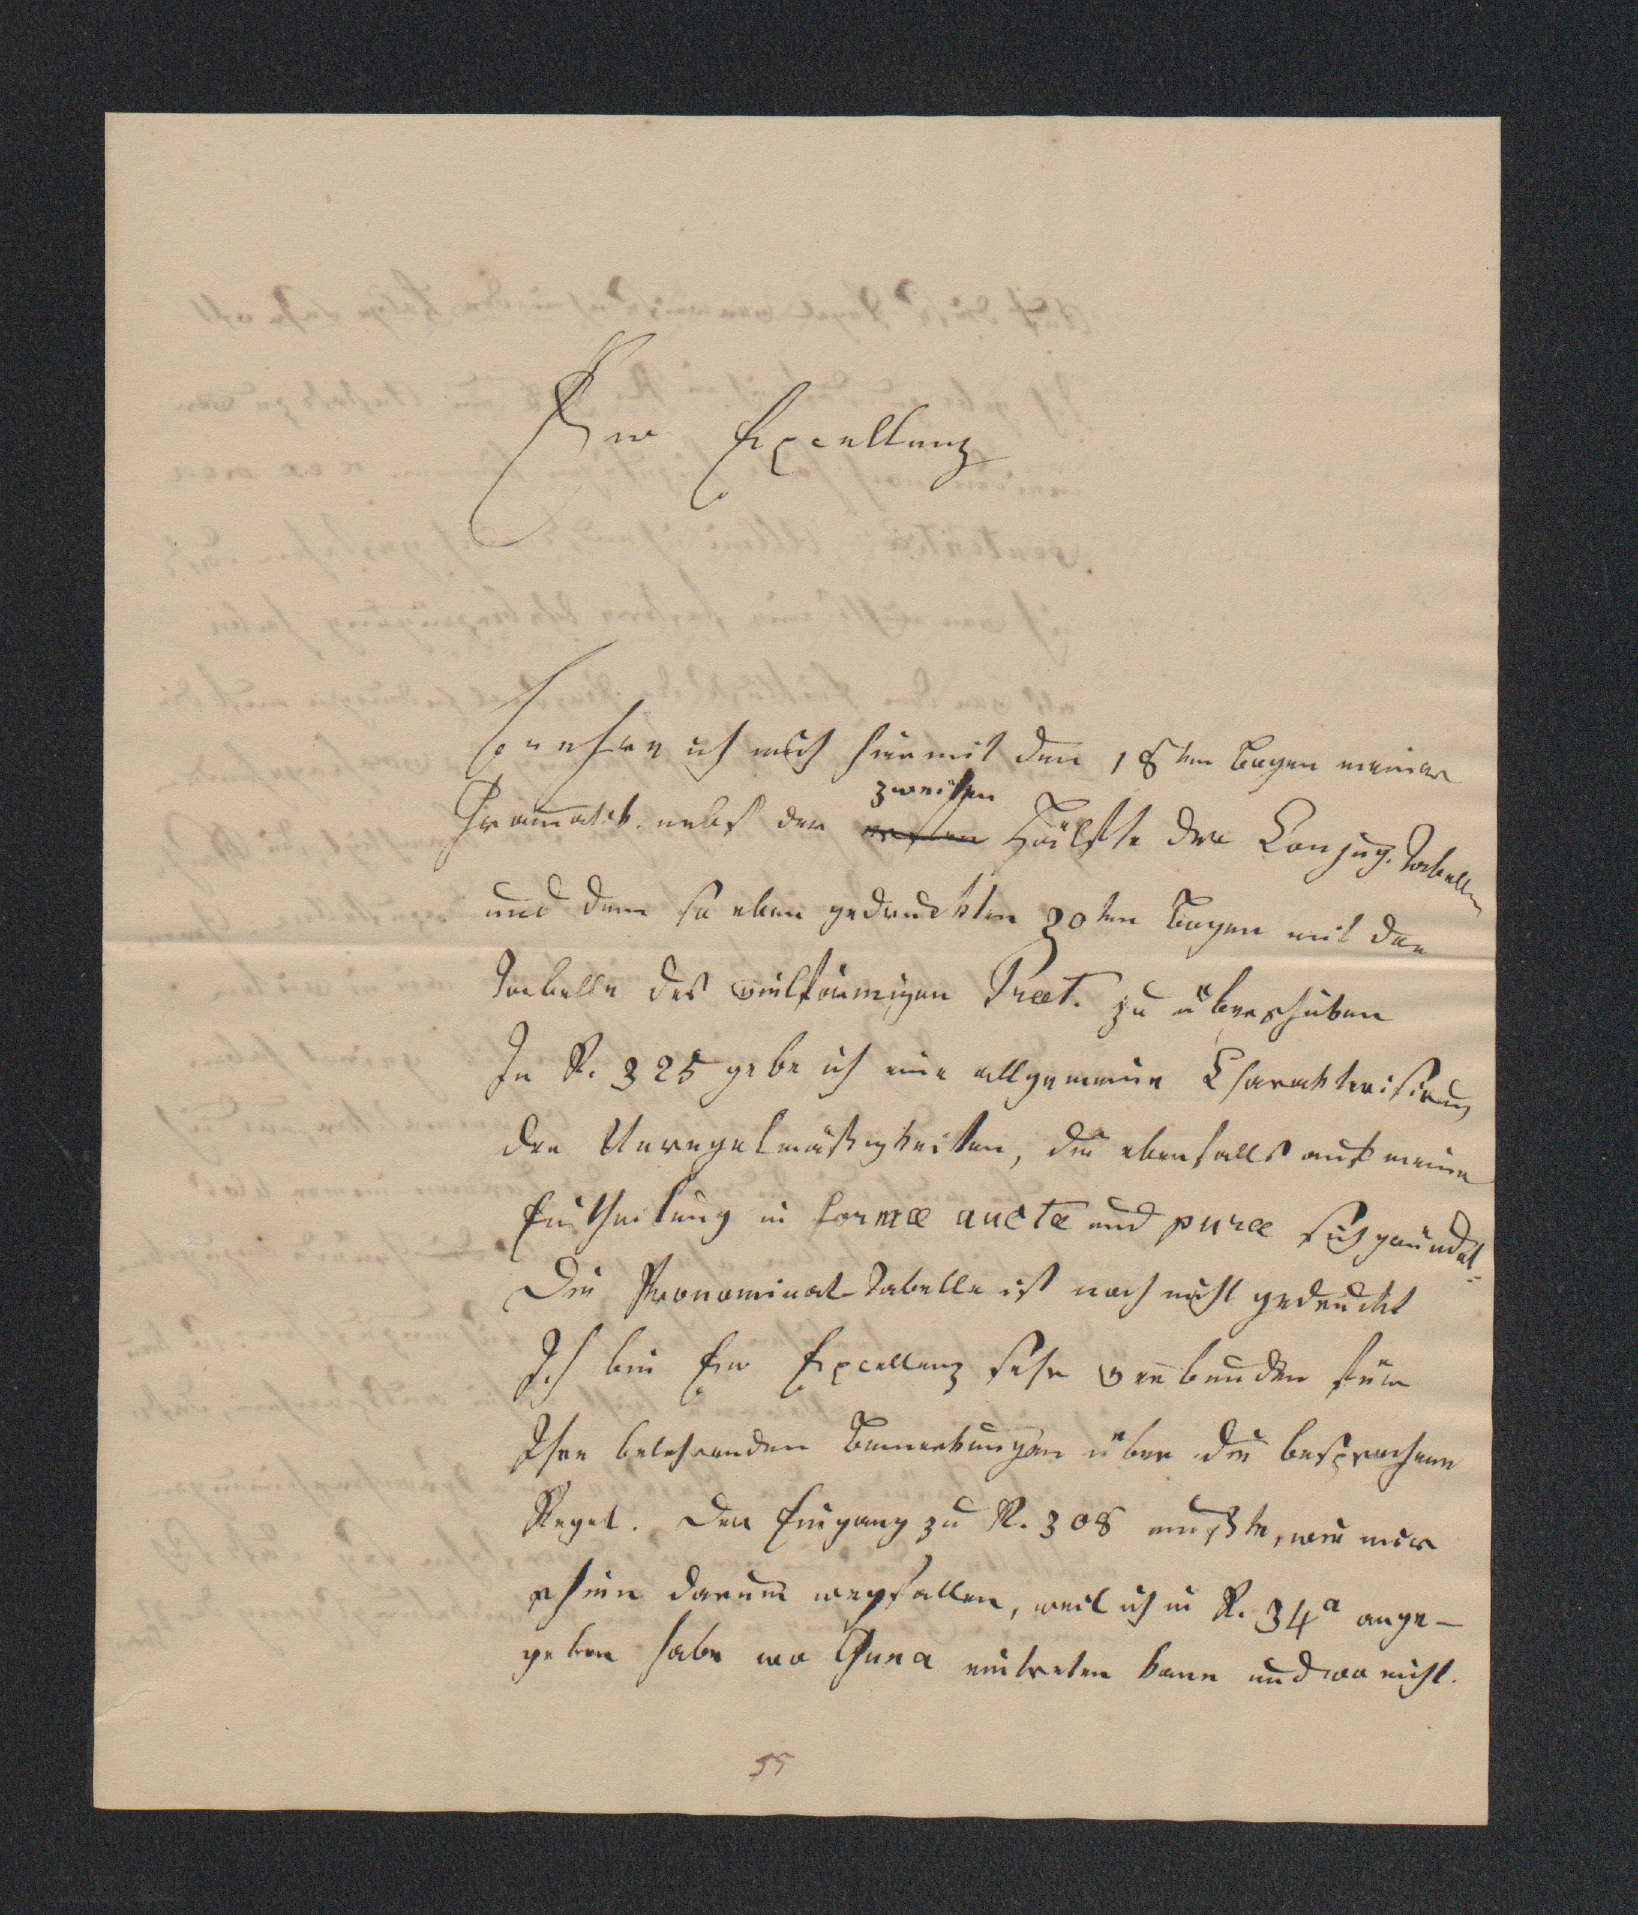 Ew Excellenz
beehre ich mich hiermit den 18ten Bogen meiner
zweiten
Grammatik nebst der ersten Hälfte der Conjug. Tabellen
und dem so eben gedruckten 30ten Bogen mit der
Tabelle des vielförmigen Praet. zu überschicken
In R. 325 gebe ich eine allgemeine Charakterisirung
der Unregelmäßigkeiten, die ebenfalls auf meine
Eintheilung in formae auctae und purae sich gründet.
Die Pronominal-Tabelle ist noch nicht gedruckt
Ich bin Ew Excellenz sehr verbunden für
Ihre belehrenden Bemerkungen über die besprochene
Regel. Der Eingang zu R. 308 mußte, wie mir
schien darum wegfallen, weil ich in R. 34a ange-
geben habe wo Guna eintreten kann und wo nicht.
55